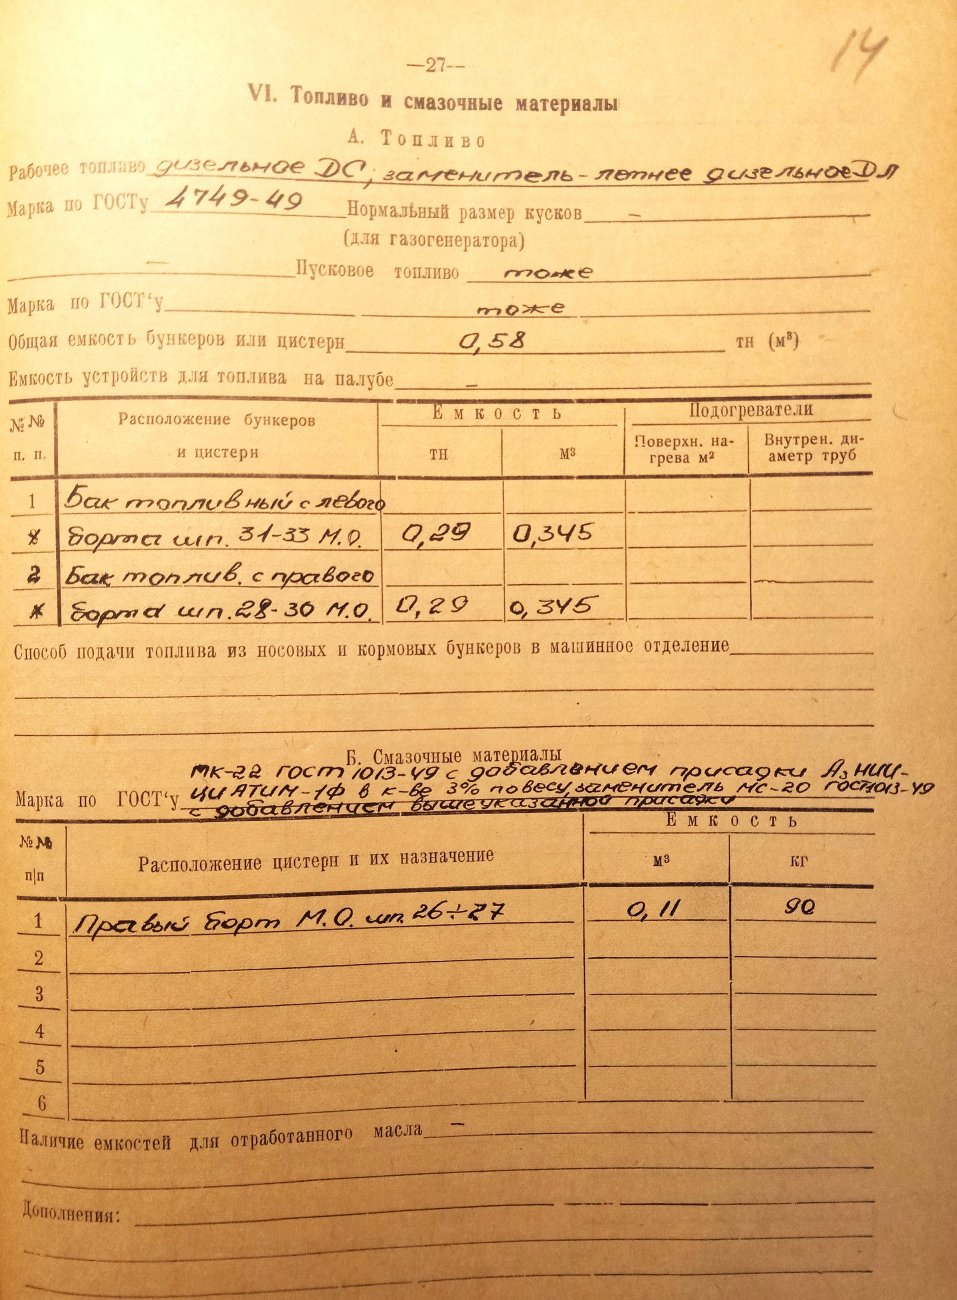 14
—27--
VI. Топливо и смазочные материалы
А. Топливо
Рабочее топливо дизельное ДС, заменитель - летнее дизельное ДЛ
Марка по ГОСТу 4749-49 Нормальный размер кусков –
(для газогенератора)
— Пусковое топливо тоже
Марка по ГОСТ‘у тоже
Общая емкость бункеров или цистерн 0,58 тн (м³)
Емкость устройств для топлива на палубе –
№№ п. п. Расположение бункеров и цистерн Емкость Подогреватели
тн м³ Поверхн. на-грева м² Внутрен. ди-аметр труб
1 Бак топливный с левого
борта шп. 31-33 М.О. 0,29 0,345
2 Бак топлив. с правого
борта шп. 28-30 М.О. 0,29 0,345
Способ подачи топлива из носовых и кормовых бункеров в машинное отделение
Б. Смазочные материалы
МК-22 ГОСТ 1013-49 с добавлением присадки АзНИИ-
Марка по ГОСТ‘у ЦИАТИМ-1ф в к-ве 3% по весу, заменитель МС-20 ГОСТ 1013-49
с добавлением вышеуказанной присадки
№№ п|п Расположение цистерн и их назначение Емкость
м³ кг
1 Правый борт М.О. шп. 26÷27 0,11 90
2
3
4
5
6
Наличие емкостей для отработанного масла –
Дополнения: